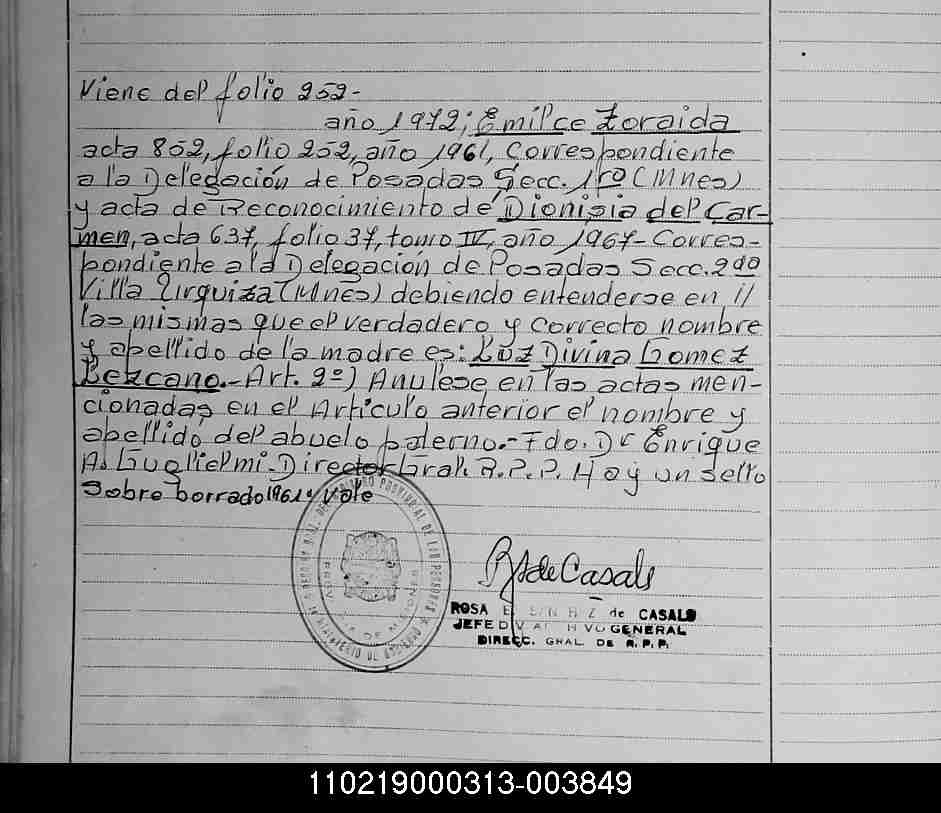 Viene del folio 252-
año 1972; Emilce Zoraida
acta 852, folio 252, año 1961, Correspondiente
a la Delegación de Posadas Secc. 1ra (Mnes)
y acta de Reconocimiento de Dionisia del Car-
men, acta 637, folio 37, tomo IV, año 1967- Corres-
pondiente a la Delegación de Posadas Secc. 2da
Villa Urquiza (Mnes) debiendo entenderse en //
las mismas que el verdadero y correcto nombre
y apellido de la madre es: Luz Divina Gomez
Lezcano.- Art. 2º) Anulese en las actas men-
cionadas en el Artículo anterior el nombre y
apellido del abuelo paterno.- Fdo. Dr Enrique
A. Guglielmi. Director Gral. R.P.P. Hay un sello
Sobre borrado "1961" Vale
ROSA E. de CASALS
JEFE GENERAL
DIRECC. GRAL DE R.P.P.
110219000313-003849